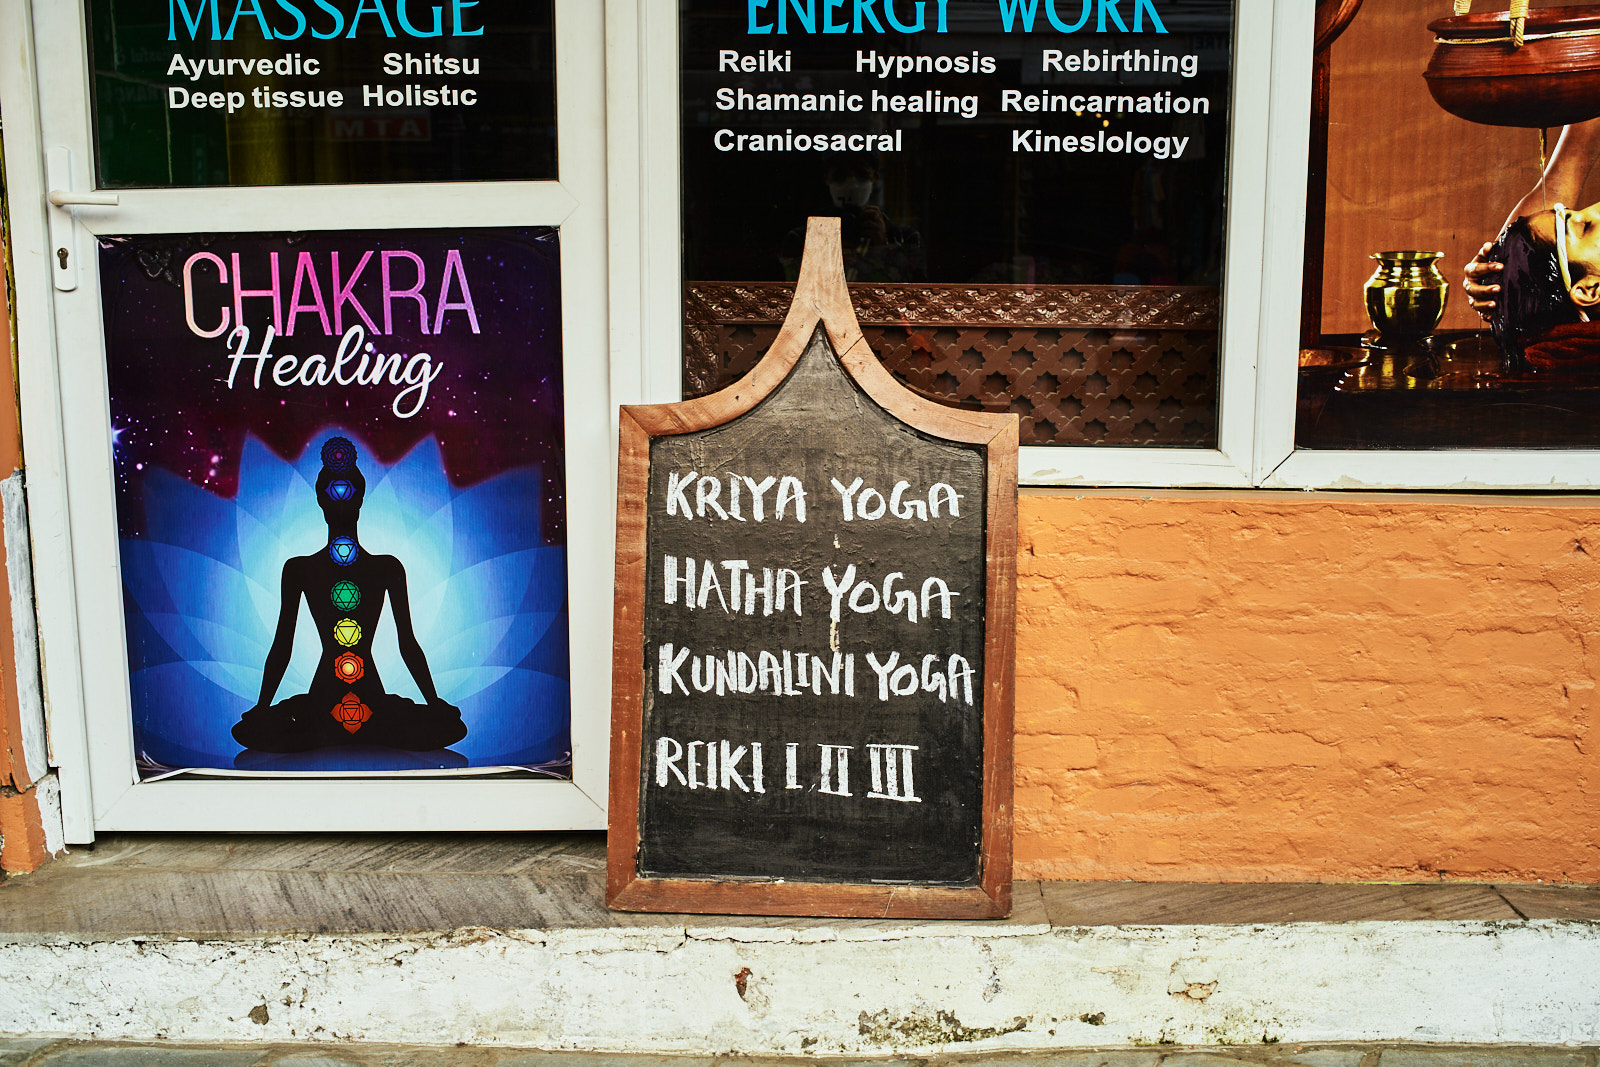 MASSAGE
Ayurvedic Shitsu
Deep tissue Holistic
ENERGY WORK
Reiki Hypnosis Rebirthing
Shamanic healing Reincarnation
Craniosacral Kineslology
CHAKRA
Healing
KRIYA YOGA
HATHA YOGA
KUNDALINI YOGA
REIKI I, II III